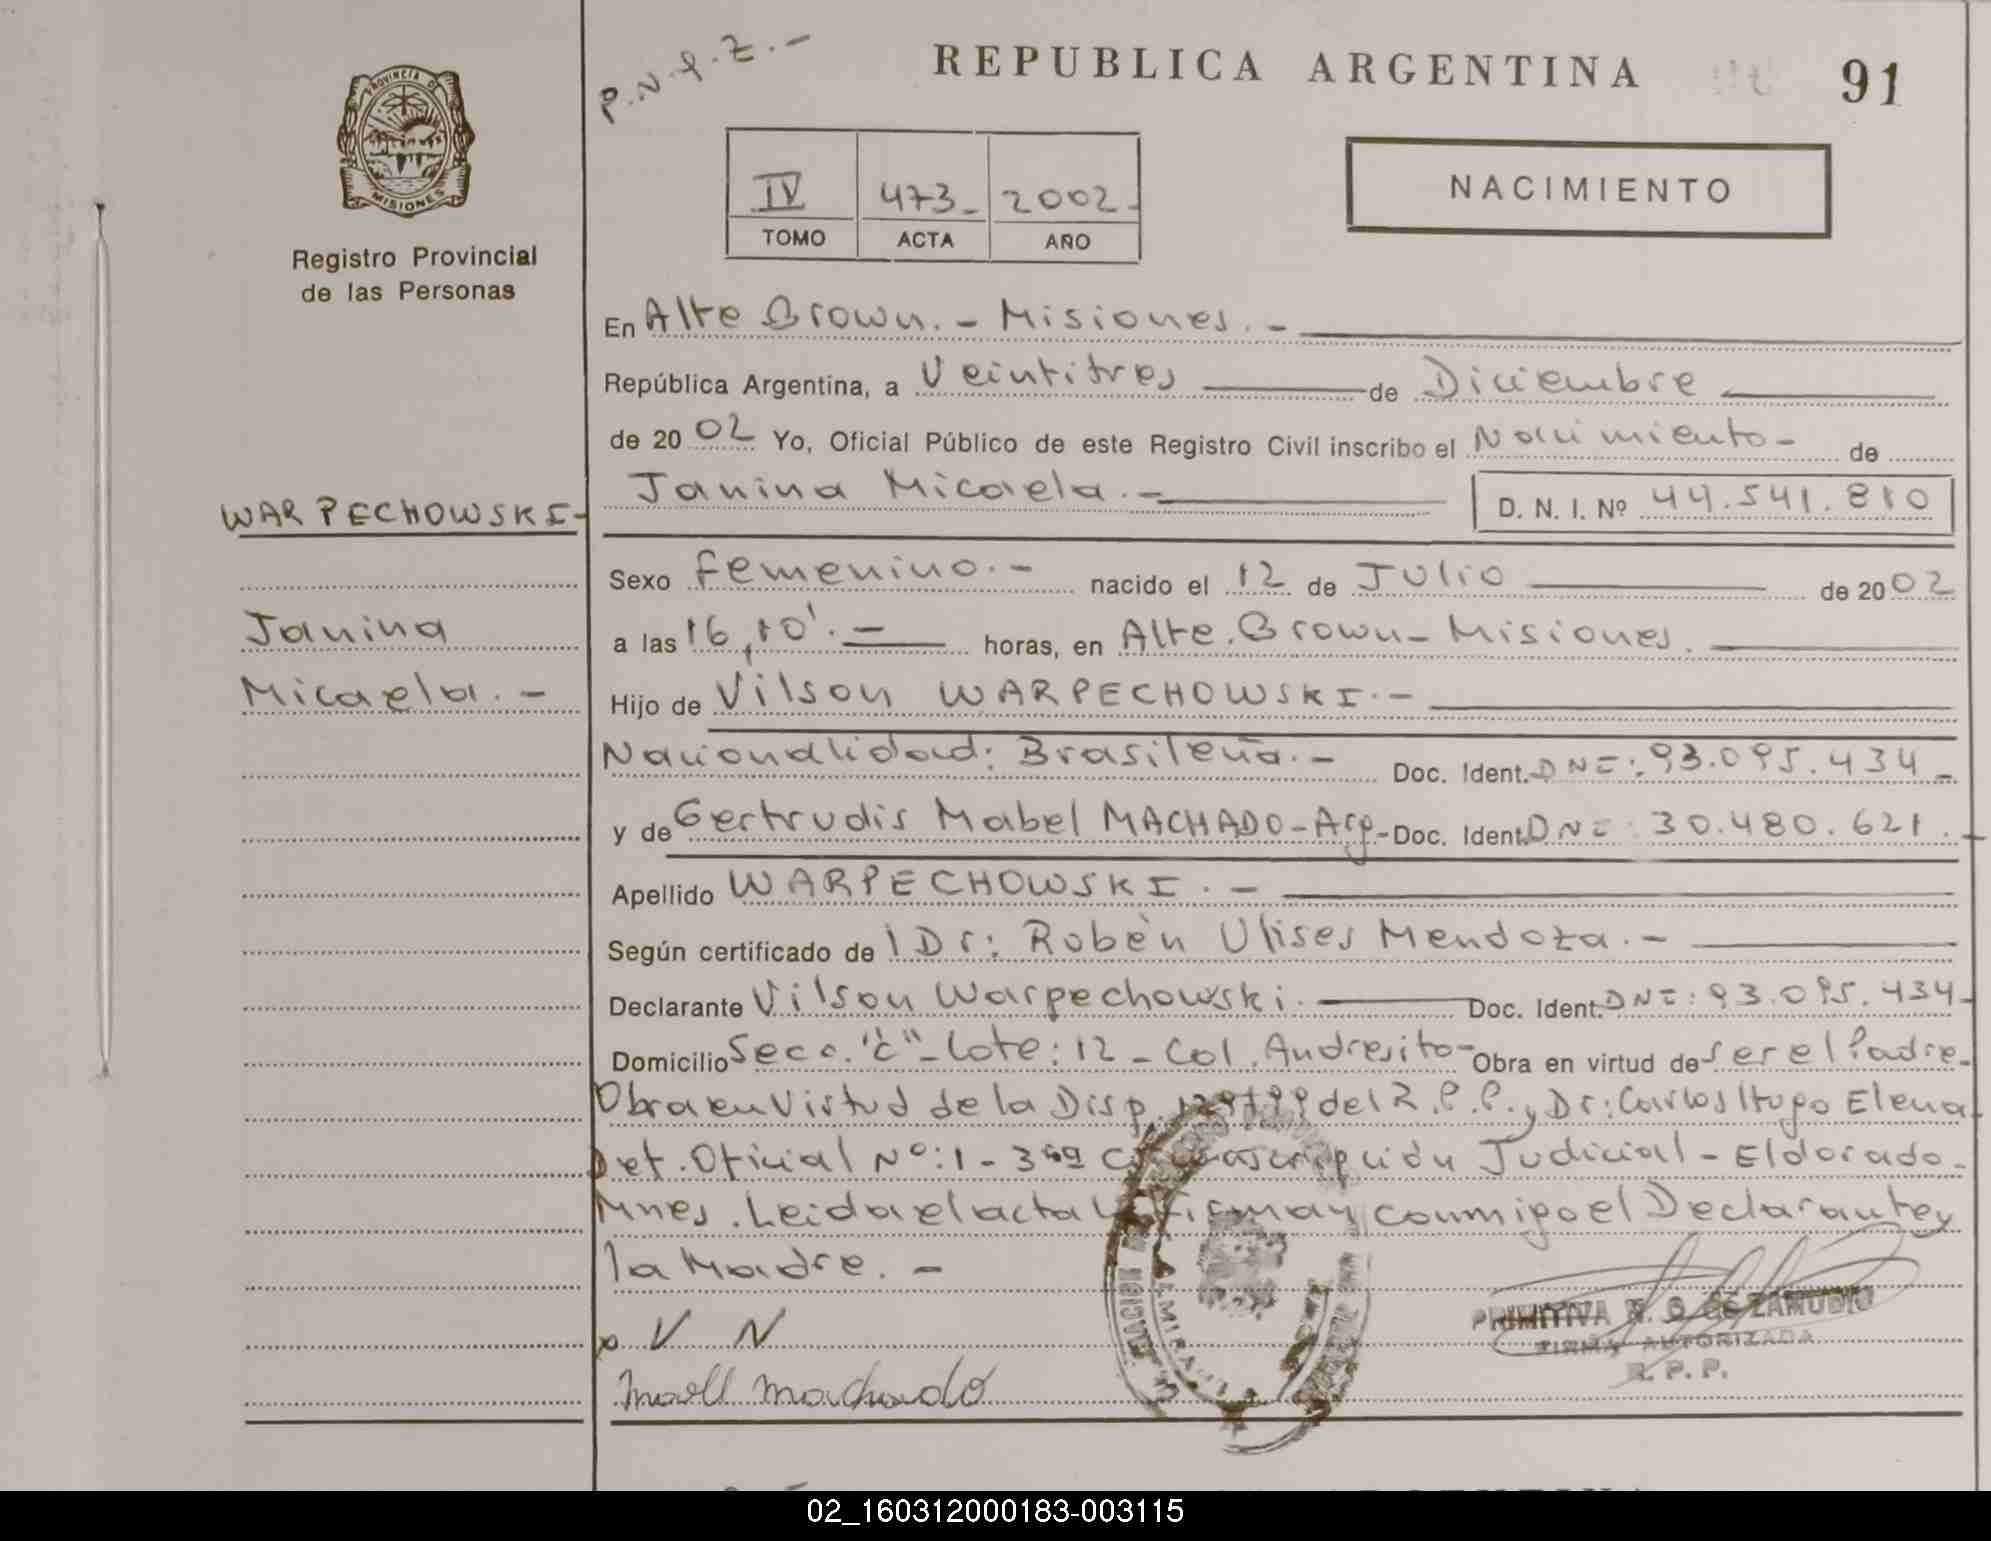 P.N.q.Z.-
REPUBLICA ARGENTINA
91
PROVINCIA DE
MISIONES
Registro Provincial
de las Personas
IV 473- 2002-
TOMO ACTA AÑO
NACIMIENTO
En Alte Brown.- Misiones.-
República Argentina, a Veintitres de Diciembre
de 2002 Yo, Oficial Público de este Registro Civil inscribo el Nacimiento- de
Janina Micaela.- D. N. I. Nº 44.541.810
WARPECHOWSKI-
Janina
Micaela.-
Sexo Femenino.- nacido el 12 de Julio de 2002
a las 16,10'.- horas, en Alte. Brown- Misiones.
Hijo de Vilson WARPECHOWSKI.-
Nacionalidad: Brasileña.- Doc. Ident. DNI: 93.095.434-
y de Gertrudis Mabel MACHADO-Arg- Doc. Ident. DNI: 30.480.621.-
Apellido WARPECHOWSKI.-
Según certificado de l Dr: Rubén Ulises Mendoza.-
Declarante Vilson Warpechowski. Doc. Ident. DNI: 93.095.434-
Domicilio Secc. "C"- Lote: 12 - Col. Andresito- Obra en virtud de ser el Padre-
Obra en Virtud de la Disp. del R.P.P. y Dr: Carlos Hugo Elena
Def. Oficial Nº: 1 - 3ra Circunscripción Judicial - Eldorado-
Mnes. Leida el acta la firman conmigo el Declarante y
la Madre.-
V N
machado
PRIMITIVA DE ZAMUDIO
FIRMA AUTORIZADA
R. P. P.
02_160312000183-003115